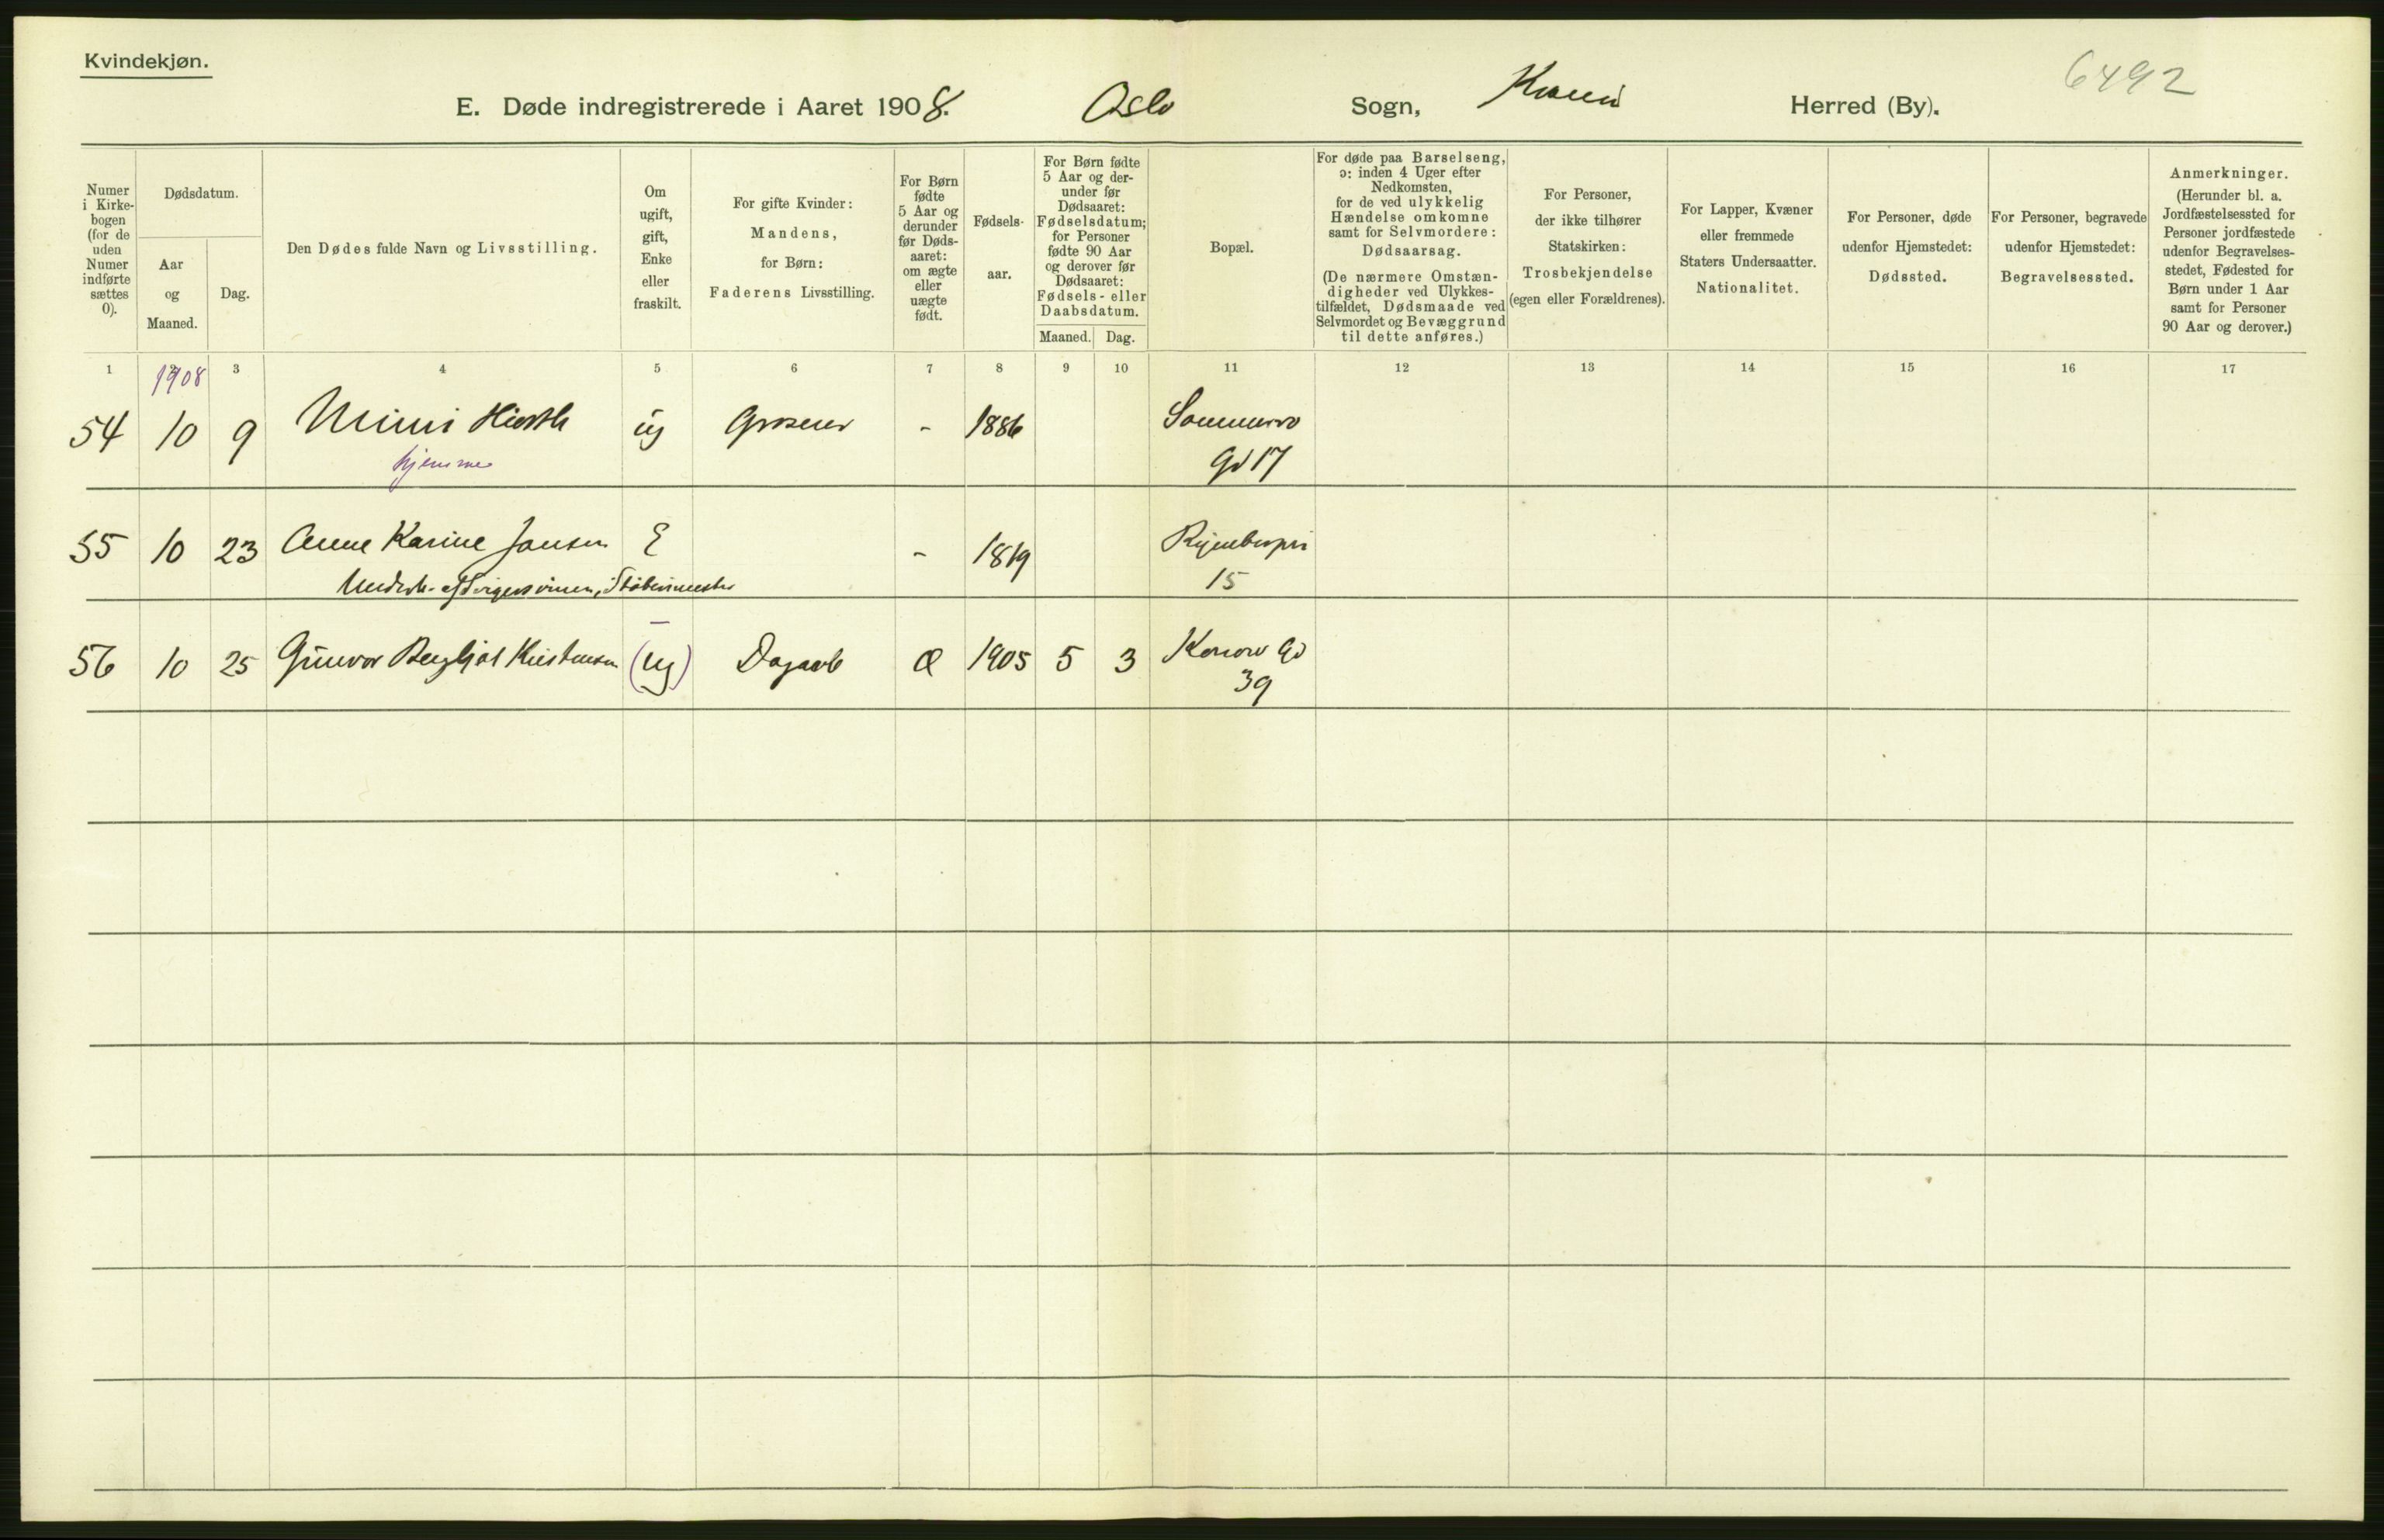 Kvindekjøn.
6492
E. Døde indregistrerede i Aaret 1908. Oslo Sogn, Herred (By).
Numer
i Kirke-
bogen
(for de
uden
Numer
indførte
sættes
0).
Dødsdatum.
Aar
og
Maaned.
Dag.
Den Dødes fulde Navn og Livsstilling.
Om
ugift,
gift,
Enke
eller
fraskilt.
For gifte Kvinder:
Mandens,
for Børn:
Faderens Livsstilling.
For Børn
fødte
5 Aar og
derunder
før Døds-
aaret:
om ægte
eller
uægte
født.
Fødsels-
aar.
For Børn fødte
5 Aar og der-
under før
Dødsaaret:
Fødselsdatum;
for Personer
fødte 90 Aar
og derover før
Dødsaaret:
Fødsels- eller
Daabsdatum.
Maaned. Dag.
Bopæl.
For døde paa Barselseng,
ɔ: inden 4 Uger efter
Nedkomsten,
for de ved ulykkelig
Hændelse omkomne
samt for Selvmordere:
Dødsaarsag.
(De nærmere Omstæn-
digheder ved Ulykkes-
tilfældet, Dødsmaade ved
Selvmordet og Bevæggrund
til dette anføres.)
For Personer,
der ikke tilhører
Statskirken:
Trosbekjendelse
(egen eller Forældrenes).
For Lapper, Kvæner
eller fremmede
Staters Undersaatter.
Nationalitet.
For Personer, døde
udenfor Hjemstedet:
Dødssted.
For Personer, begravede
udenfor Hjemstedet:
Begravelsessted.
Anmerkninger.
(Herunder bl. a.
Jordfæstelsessted for
Personer jordfæstede
udenfor Begravelses-
stedet, Fødested for
Børn under 1 Aar
samt for Personer
90 Aar og derover.)
1 2 3 4 5 6 7 8 9 10 11 12 13 14 15 16 17
1908
54 10 9 Mimi Hiorth ug Grosserer - 1886 Sommerro
hjemme Gd 17
55 10 23 Anne Karine Jansen E - 1819
15
56 10 25 Gunvor Bergljot Kristensen (ug) Dagarb Æ 1905 5 3 Konow Gd
39